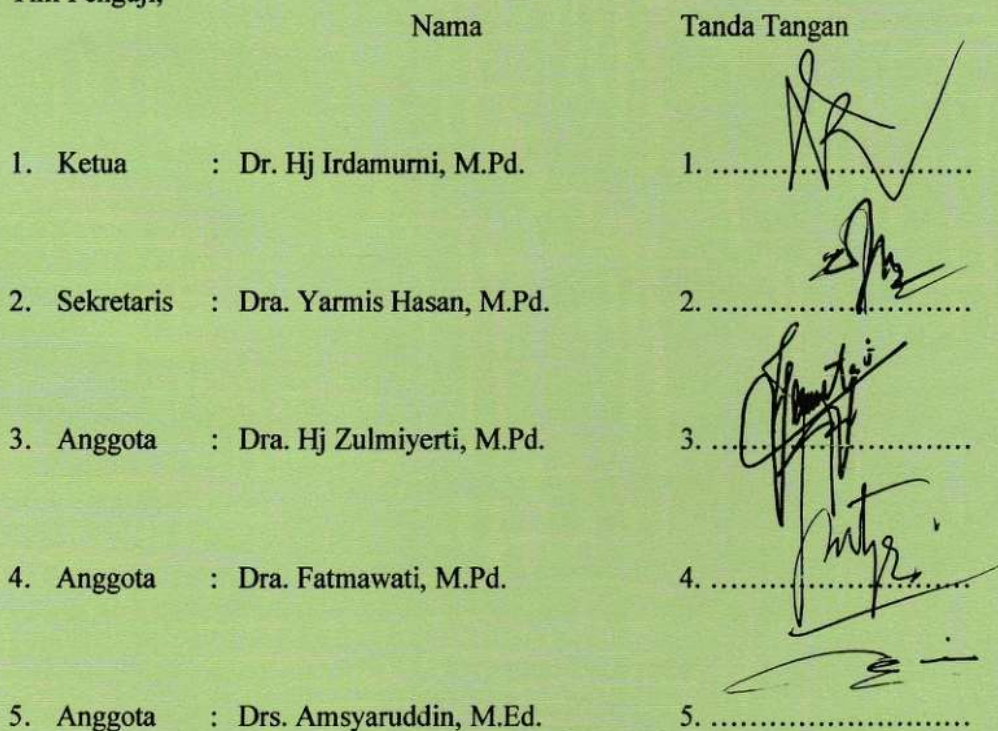 Nama Tanda Tangan
1. Ketua : Dr. Hj Irdamurni, M.Pd. 1. ..........................
2. Sekretaris : Dra. Yarmis Hasan, M.Pd. 2. ..........................
3. Anggota : Dra. Hj Zulmiyerti, M.Pd. 3. ..........................
4. Anggota : Dra. Fatmawati, M.Pd. 4. ..........................
5. Anggota : Drs. Amsyaruddin, M.Ed. 5. ..........................